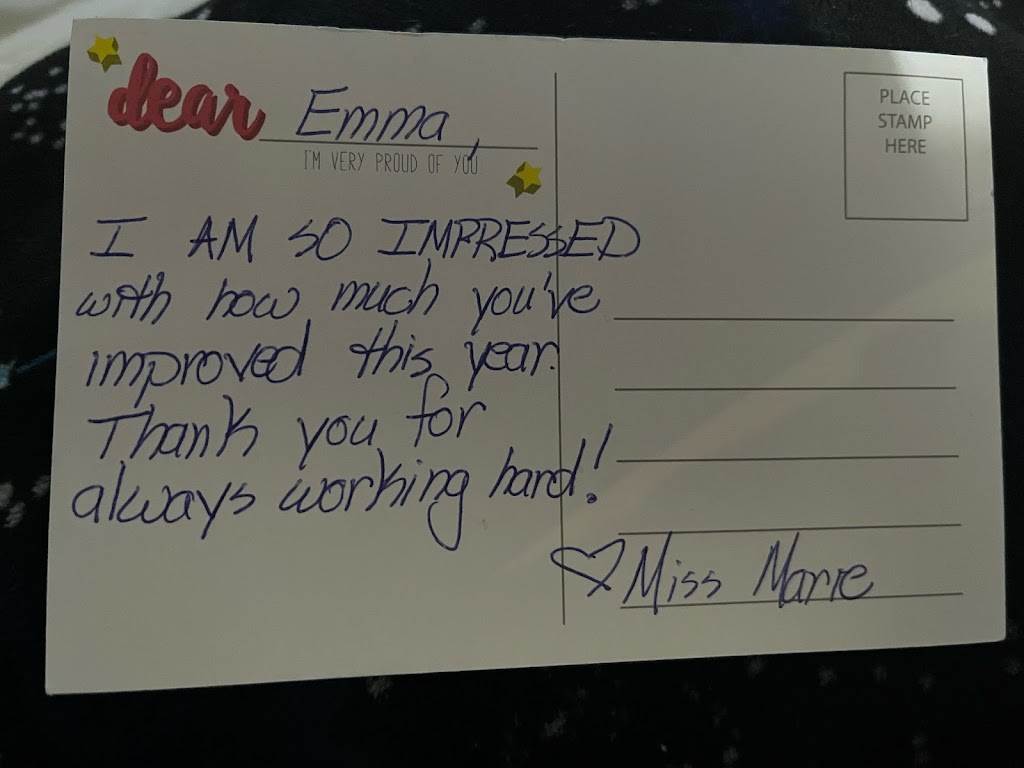 dear Emma,
I'M VERY PROUD OF YOU
I AM SO IMPRESSED
with how much you've
improved this year.
Thank you for
always working hard!
♡ Miss Marie
PLACE
STAMP
HERE